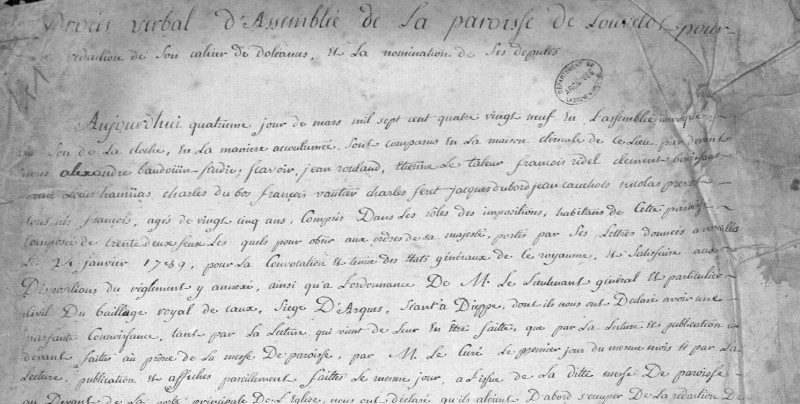 Procès verbal d'Assemblée de La paroisse de Louvetot pour
La redaction de son cahier de doléances, et La nomination de ses deputés
DEPARTEMENT DE LA SEINE INFRE ARCHIVES
Aujourdhui quatrieme jour de mars mil sept cent quatre vingt neuf En L'assemblée convoquée,
au son de La cloche, En La maniere accoutumée, sont comparus En La maison clericale de ce Lieu, par devant
nous alexandre baudouin sindic, scavoir, jean rouland, Etienne Le taleur françois ridel clement
Louis charles du bos françois vautier charles feret jacques dubord jean cauchois nicolas
tous nés françois, agés de vingt cinq ans, compris Dans Les rôles des impositions, habitans de Cette paroisse
Composée de trente deux feux Les quels pour obéir aux ordres de sa majesté, portés par Ses Lettres données a versailles
Le 24 janvier 1789, pour La Convocation et tenue des états généraux de ce royaume, et Satisfaire aux
Dispositions du réglement y annexé, ainsi qu'a Lordonnance De M. Le Lieutenant général et particulier
civil Du bailliage royal de caux, Siege D'Arques, Séant à Dieppe, dont ils nous ont Déclaré avoir une
parfaite Connoissance, tant par La Lecture qui vient de Leur En être faitte, que par La Lecture et publication cy
devant faittes au prône de La messe De paroisse, par M. Le Curé Le premier jour du mesme mois et par La
Lecture, publication et affiches pareillement faittes Le mesme jour, a Lissue de La ditte messe De paroisse
au Devant de La porte principale De L'Eglise, nous ont déclaré qu'ils alloient D'abord s'occuper De La rédaction De